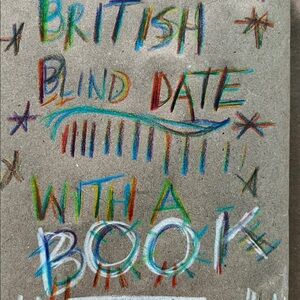 BRITISH
BLIND DATE
WITH A
BOOK